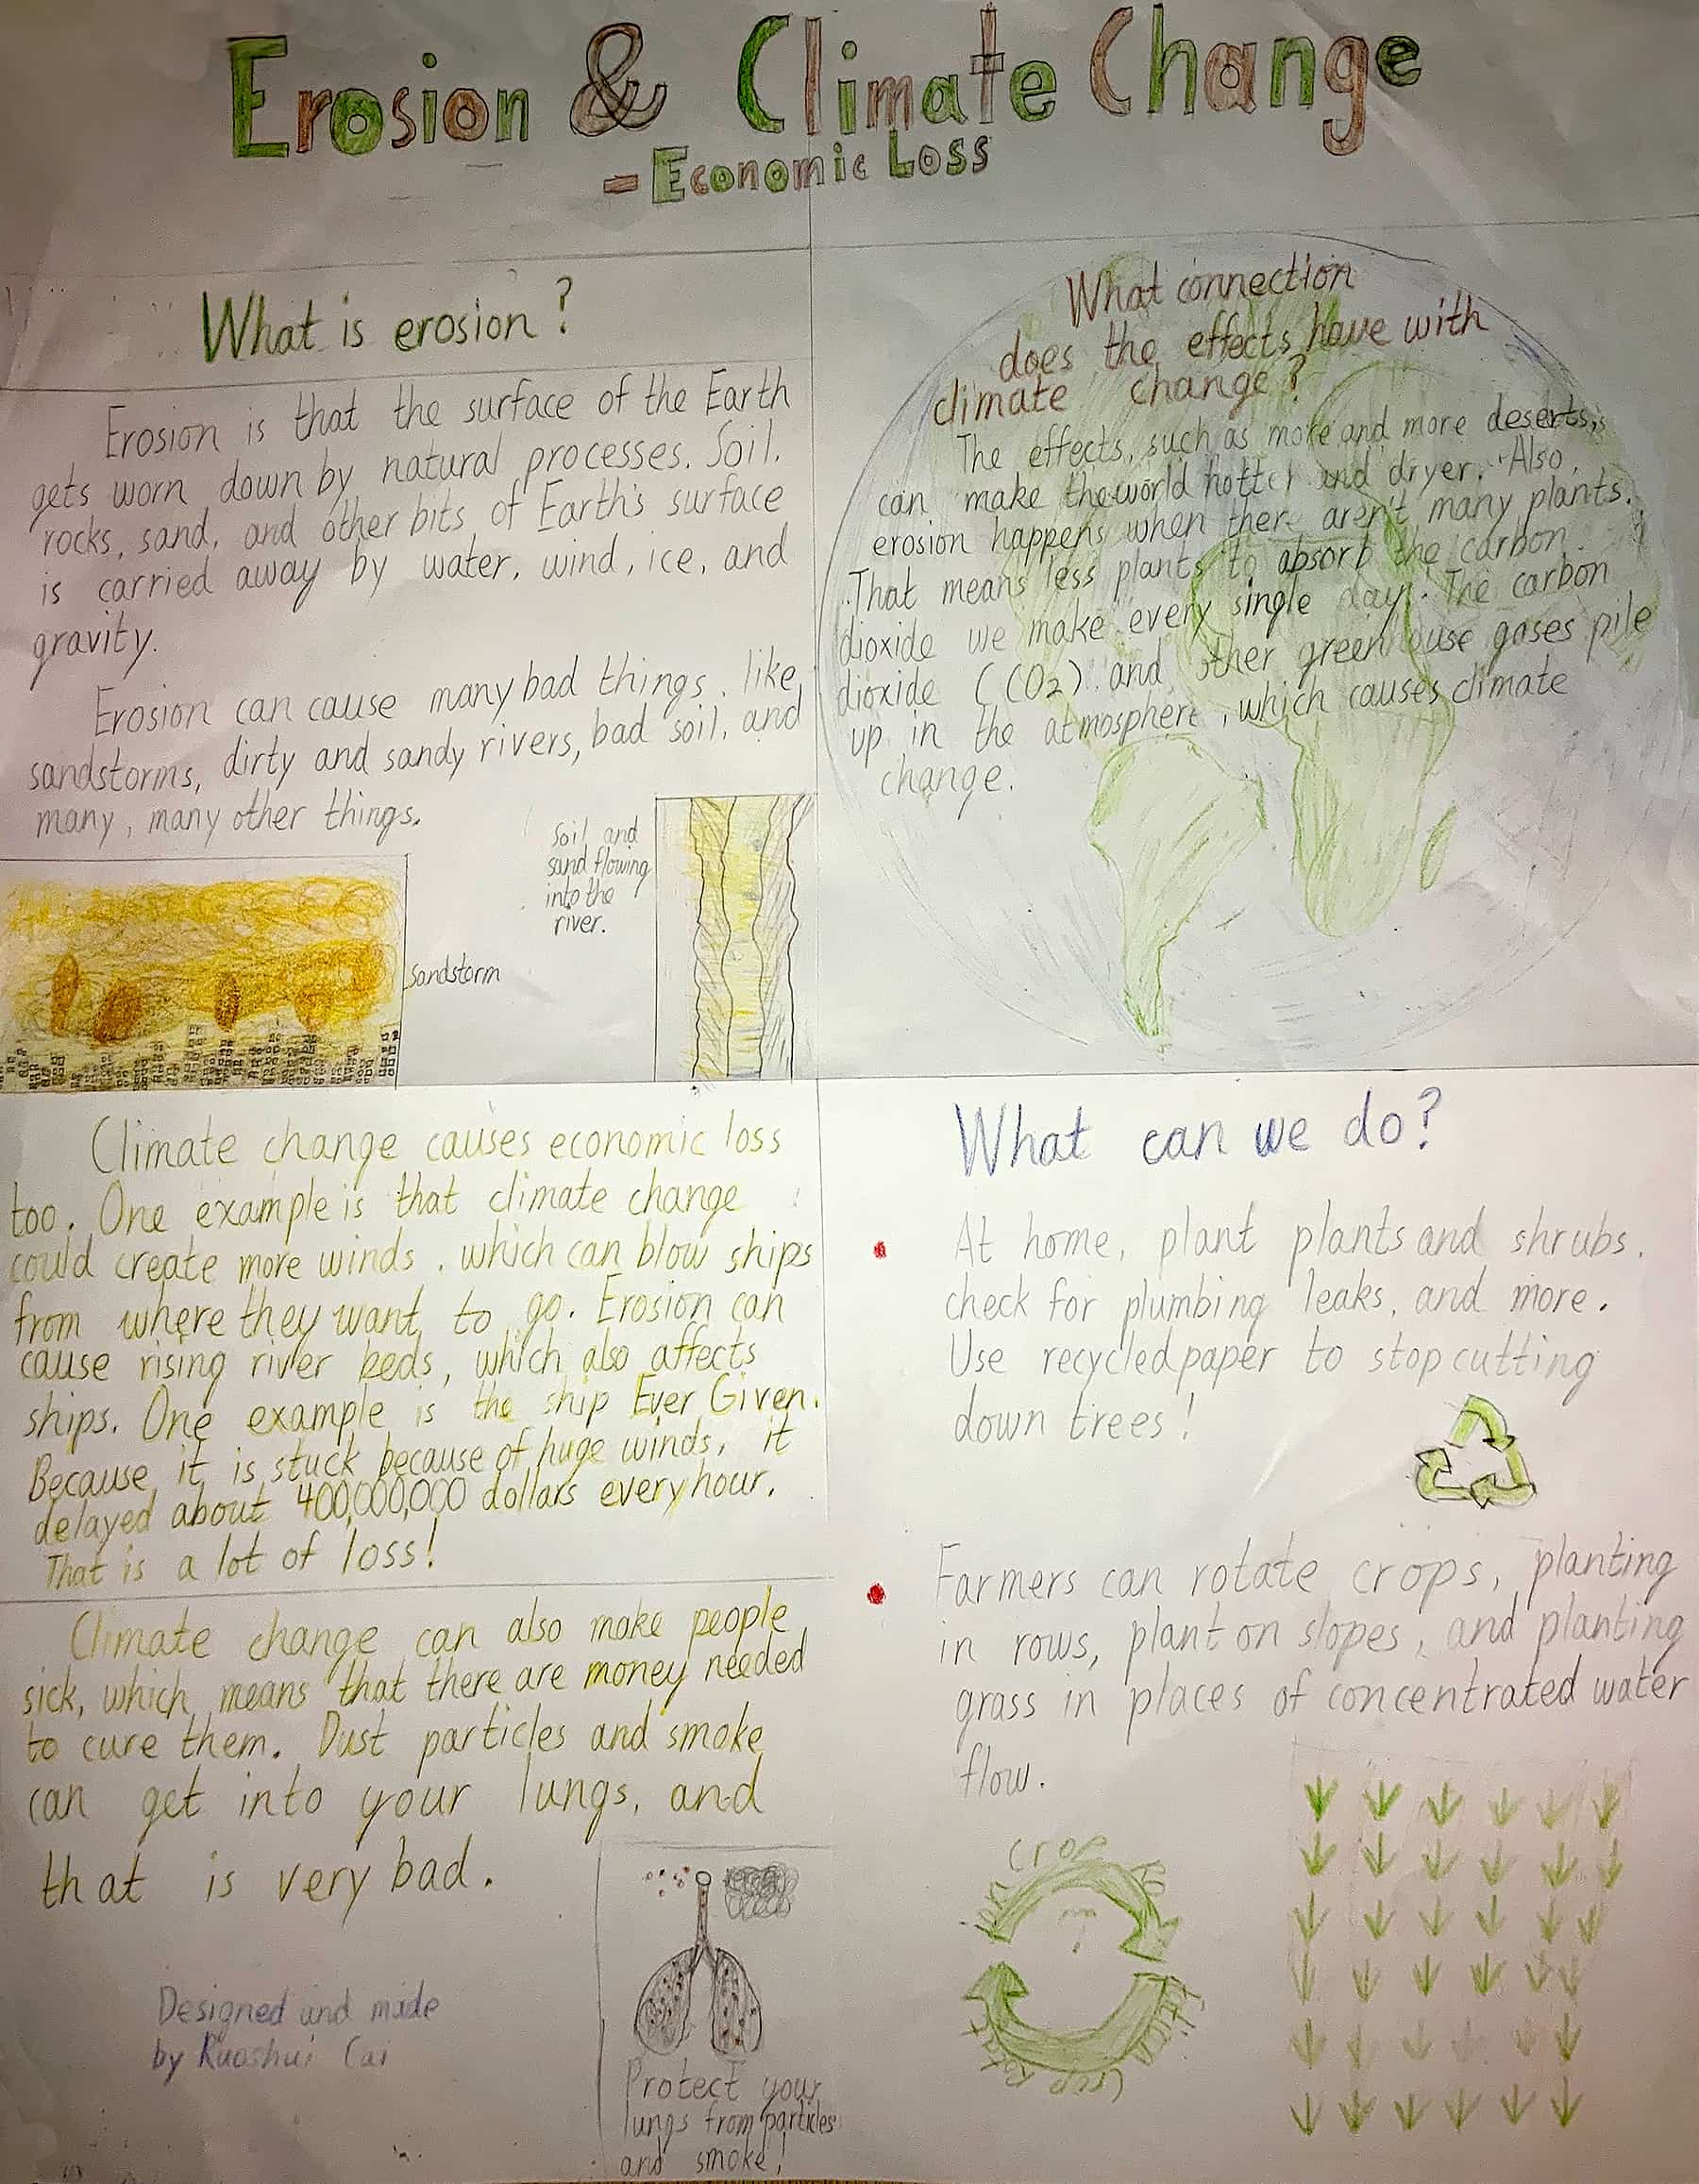 Erosion & Climate Change
- Economic Loss
What is erosion?
Erosion is that the surface of the Earth
gets worn down by natural processes. Soil,
rocks, sand, and other bits of Earth's surface
is carried away by water, wind, ice, and
gravity.
Erosion can cause many bad things, like
sandstorms, dirty and sandy rivers, bad soil, and
many, many other things.
Sandstorm
Soil and
sand flowing
into the
river.
What connection
does the effects have with
climate change?
The effects, such as more and more deserts,
can make the world hotter and dryer. Also,
erosion happens when there aren't many plants.
That means less plants to absorb the carbon
dioxide we make every single day. The carbon
dioxide (CO2) and other greenhouse gases pile
up in the atmosphere, which causes climate
change.
Climate change causes economic loss
too. One example is that climate change
could create more winds, which can blow ships
from where they want to go. Erosion can
cause rising river beds, which also affects
ships. One example is the ship Ever Given.
Because it is stuck because of huge winds, it
delayed about 400,000,000 dollars every hour.
That is a lot of loss!
Climate change can also make people
sick, which means that there are money needed
to cure them. Dust particles and smoke
can get into your lungs, and
that is very bad.
Designed and made
by Ruoshui Cai
Protect your
lungs from particles
and smoke!
What can we do?
At home, plant plants and shrubs,
check for plumbing leaks, and more.
Use recycled paper to stop cutting
down trees!
Farmers can rotate crops, planting
in rows, plant on slopes, and planting
grass in places of concentrated water
flow.
crop